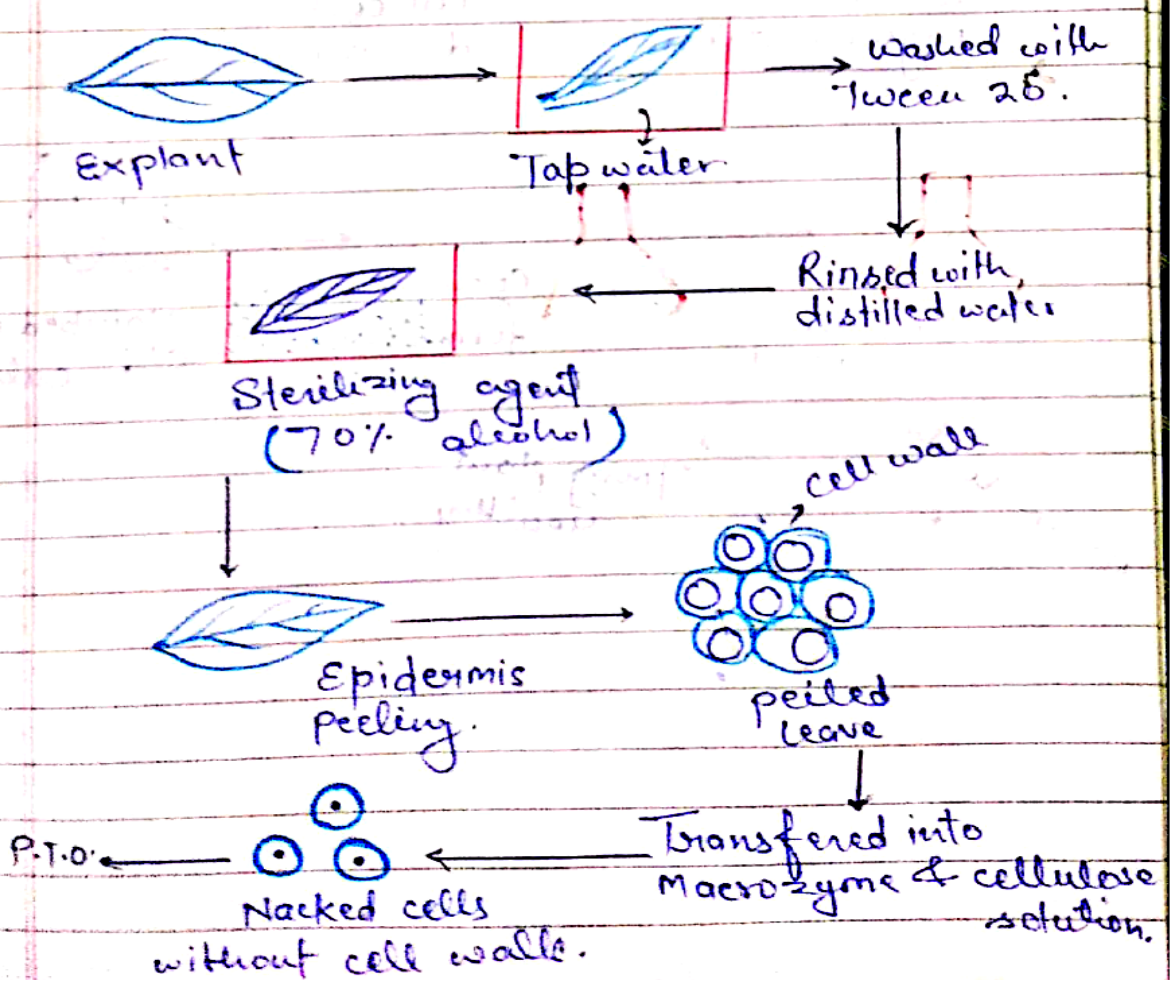 Explant
Tap water
washed with
Tween 20.
Rinsed with
distilled water
Sterilizing agent
(70% alcohol)
cell wall
Epidermis
Peeling.
peiled
leave
Transfered into
Macrozyme & cellulose
solution.
Nacked cells
without cell walls.
P.T.O.